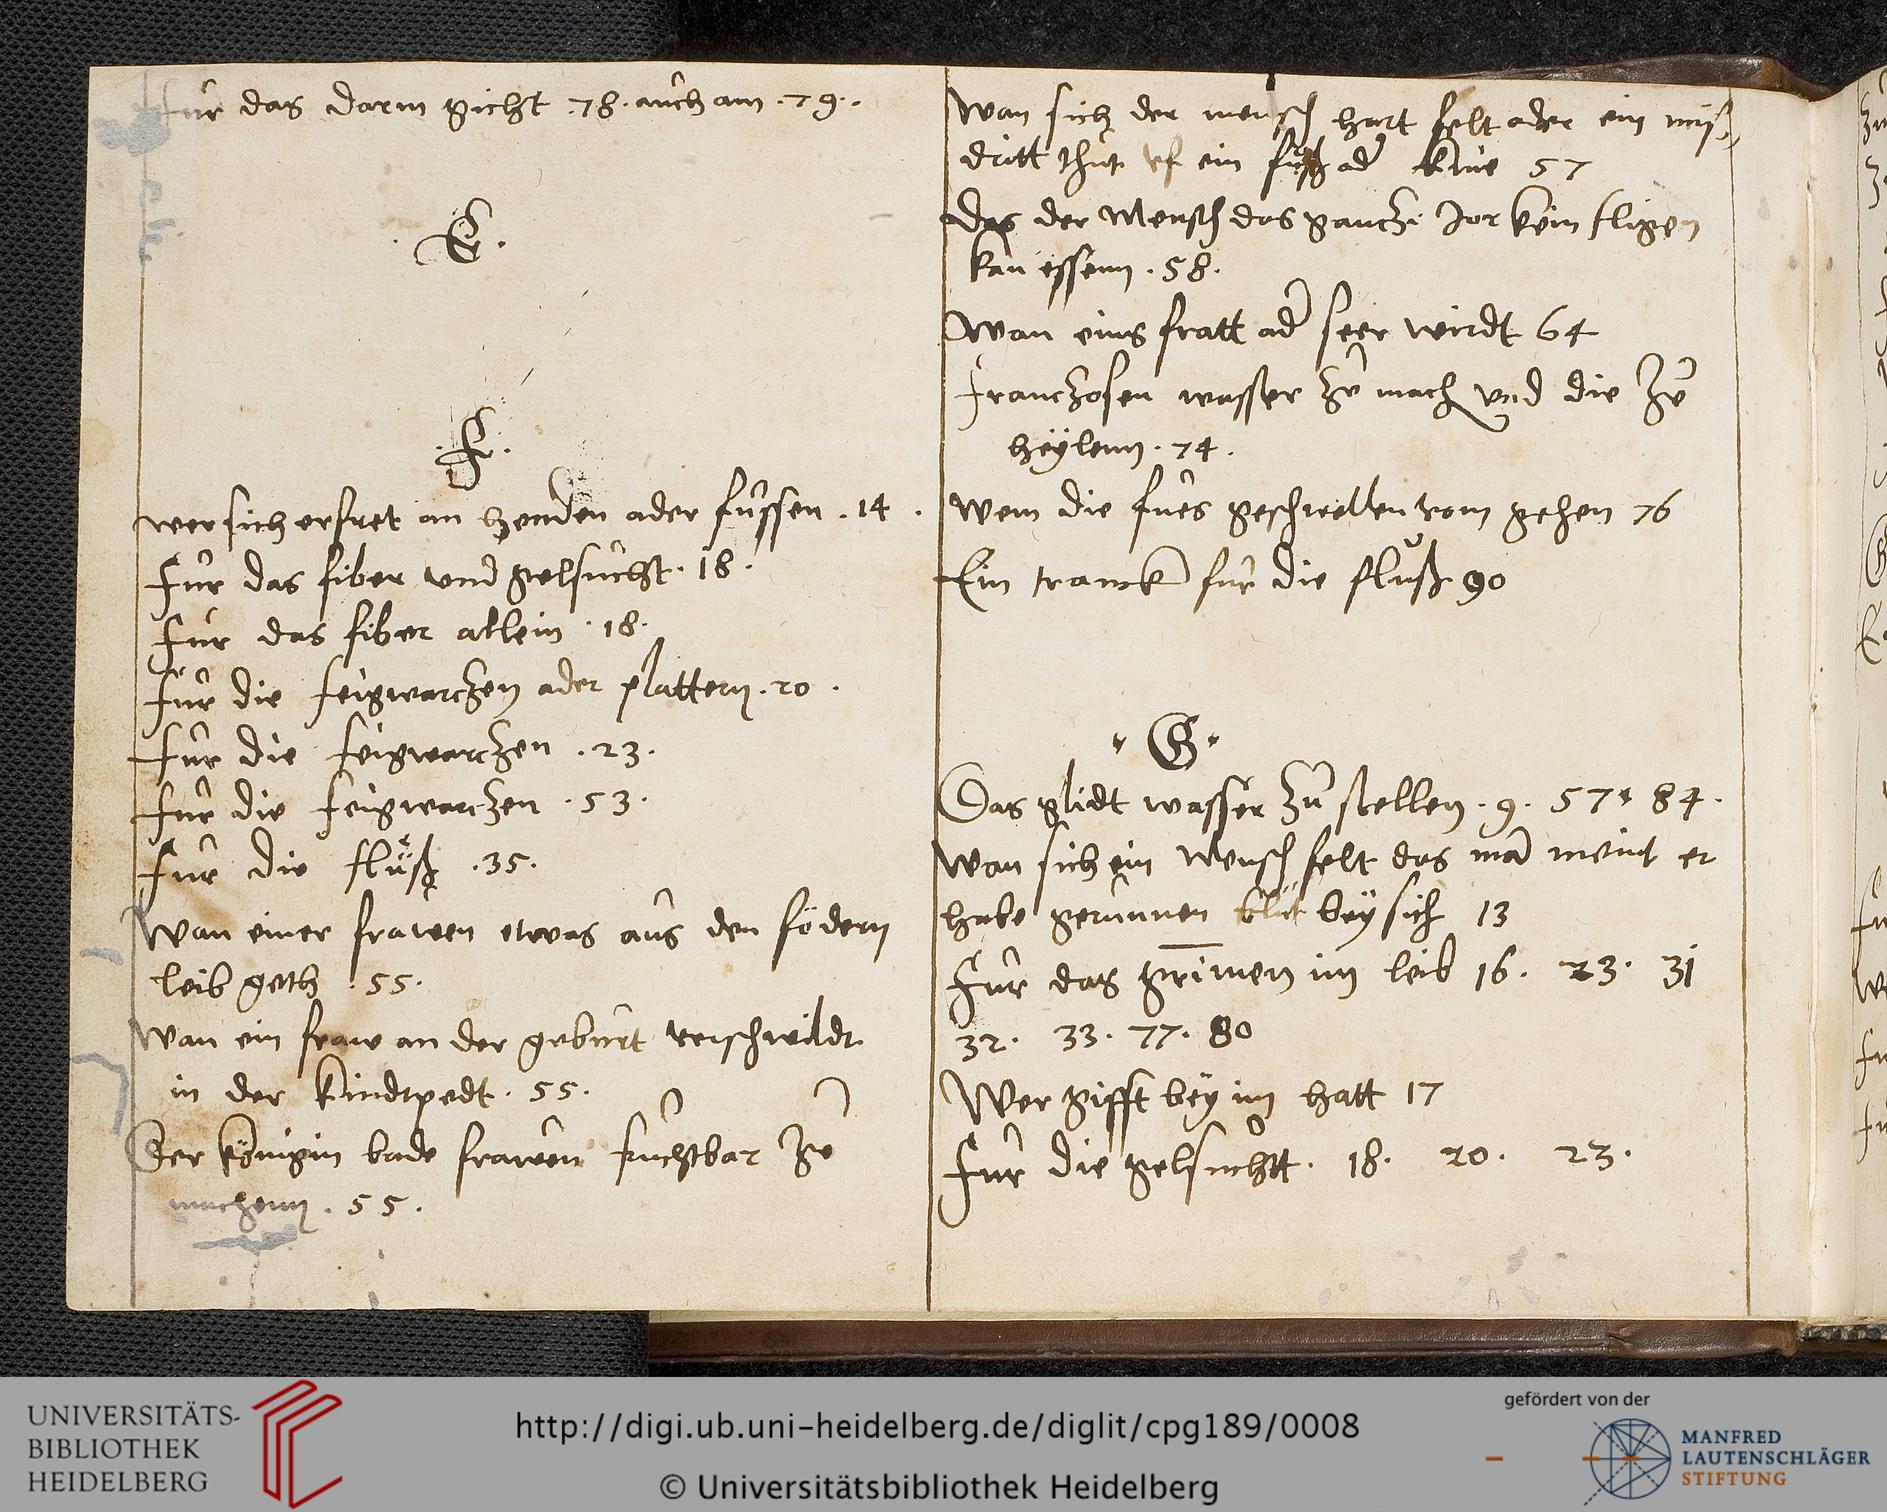 fur das darm gicht .78. auch am .79.
.E.
.F.
wer sich erfret an henden ader fussen .14.
Fur das fiber vnd gelsucht .18.
Fur das fiber allein .18.
Fur die feigwarczen ader plattern .20.
Fur die feigwarczen .23.
Fur die feigwarczen .53.
Fur die flüß .35.
Wan einer frawen etwas aus den födern
leib geth .55.
Wan ein fraw an der geburt verschwildt
in der kindtpedt .55.
Der königin bade frawen fruchtbar zu
machenn .55.
Wan sich der mensch hart felt ader ein miß
dritt thut vf ein fuß ad knie 57
Das der Mensch das gancze Jor kein fligen
kan essenn .58.
Wan eins fratt ad seer wirdt 64
Franczosen wasser zu mach vnd die zu
heÿlenn .74.
Wem die fues geschwellen vom gehen 76
Ein tranck fur die fluß 90
.G.
Das glidt wasser zu stellen .9. 57. 84.
Wan sich ein Mensch felt das ma meint er
habe gerunnen blut beÿ sich 13
Fur das grimen im leib 16. 23. 31
32. 33. 77. 80
Wer gifft beÿ im hatt 17
Fur die gelsuchtt. 18. 20. 23.
UNIVERSITÄTS-
BIBLIOTHEK
HEIDELBERG
http://digi.ub.uni-heidelberg.de/diglit/cpg189/0008
© Universitätsbibliothek Heidelberg
gefördert von der
MANFRED
LAUTENSCHLÄGER
STIFTUNG